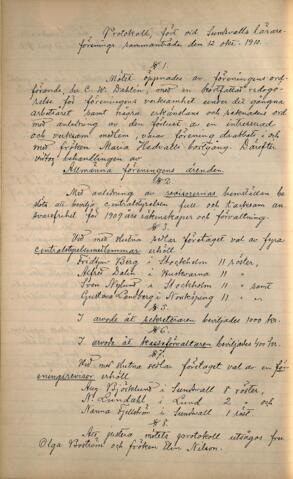 Protokoll, fört vid Sundsvalls lärare-
förenings sammanträde den 12 okt. 1910.
§ 1.
Mötet öppnades av föreningens ord-
förande, dr C. W. Dahlén, med en kortfattad redogö-
relse för föreningens verksamhet under det gångna
arbetsåret samt några erkänslans och saknadens ord
med anledning av den förlust av en intresserad
och verksam medlem, varav förening drabbats i och
med fröken Maria Hedvalls bortgång. Därefter
vidtog behandlingen av
Allmänna föreningens ärenden.
§ 2.
Med anledning av revisorernas hemställan be-
slöts att bevilja centralstyrelsen full och tacksam an-
svarsfrihet för 1909 års räkenskaper och förvaltning.
§ 3.
Vid med slutna sedlar företaget val av fyra
centralstyrelsemedlemmar erhöll
Fridtjuv Berg i Stockholm 11 röster,
Alfred Dalin i Huskvarna 11 "
Sven Nylund i Stockholm 11 " samt
Gustava Lundberg i Norrköping 11 "
§ 5.
I arvode åt sekreteraren beviljades 1000 kr.
§ 6.
I arvode åt kassaförvaltaren beviljades 400 kr.
§ 7.
Vid med slutna sedlar företaget val av en för-
eningsrevisor erhöll
Aug. Björklund i Sundsvall 8 röster,
N. Lundahl i Lund 2 " och
Nanna Fjellström i Sundsvall 1 röst.
§ 8.
Att justera mötets protokoll utsågos fru
Olga Boström och fröken Elin Nilson.